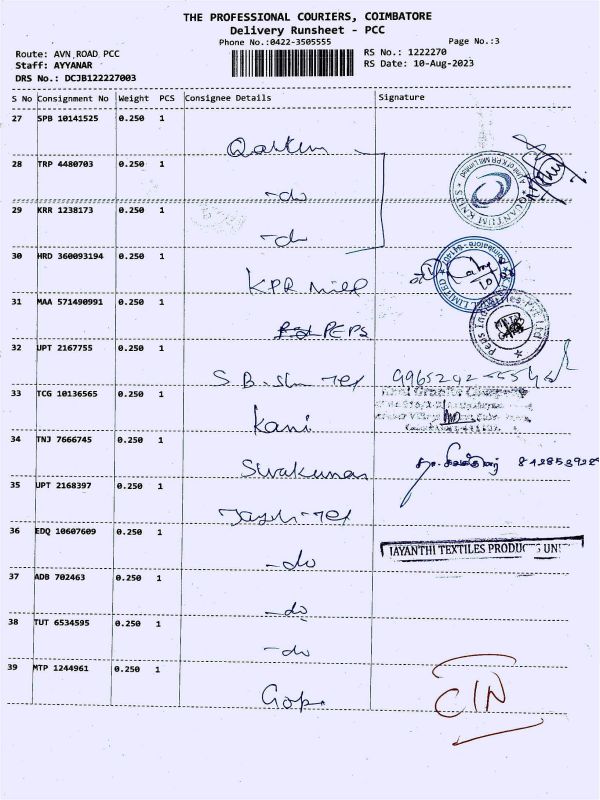 THE PROFESSIONAL COURIERS, COIMBATORE
Delivery Runsheet - PCC
Phone No.:0422-3505555 Page No.:3
Route: AVN ROAD PCC RS No.: 1222270
Staff: AYYANAR RS Date: 10-Aug-2023
DRS No.: DCJB122227003
S No Consignment No Weight PCS Consignee Details Signature
27 SPB 10141525 0.250 1
28 TRP 4480703 0.250 1
-do
29 KRR 1238173 0.250 1
-do
30 HRD 360093194 0.250 1
KPR Mill
31 MAA 571490991 0.250 1
PEPS
32 UPT 2167755 0.250 1
S.B.
33 TCG 10136565 0.250 1
Kani
34 TNJ 7666745 0.250 1
Sivakumar
35 UPT 2168397 0.250 1
36 EDQ 10607609 0.250 1
-do
JAYANTHI TEXTILES PRODUC
37 ADB 702463 0.250 1
-do
38 TUT 6534595 0.250 1
-do
39 MTP 1244961 0.250 1
QUANTUM KNIT
Peps Industries Pvt Ltd